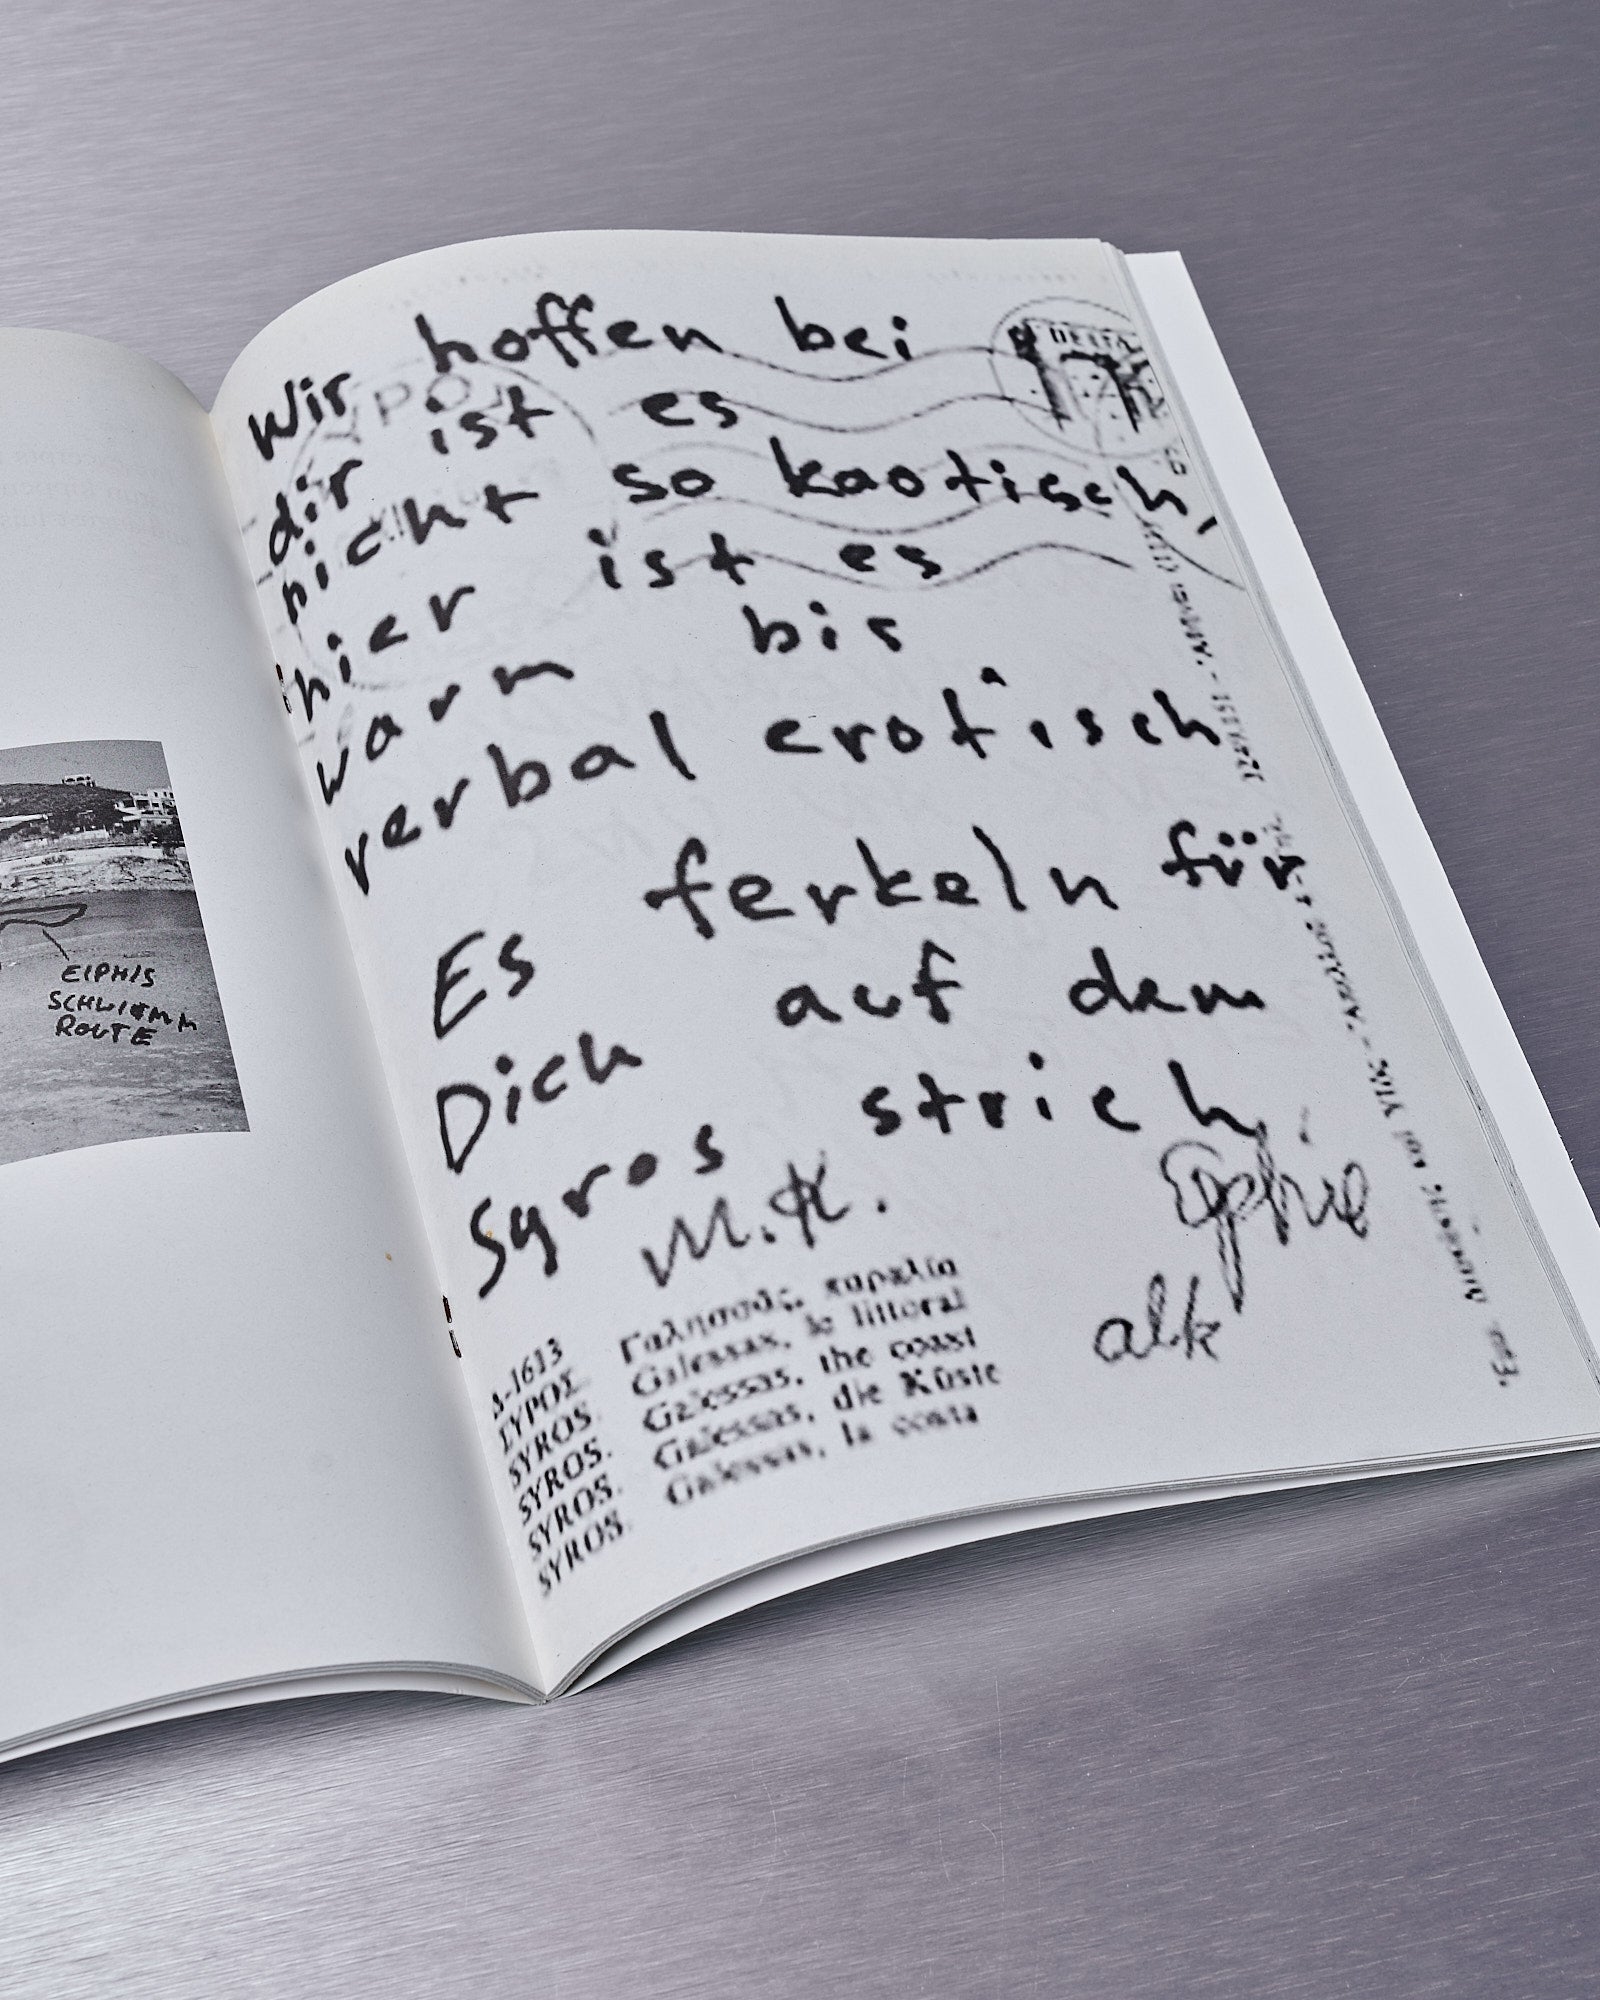 EIPHIS
SCHWIEMM
ROUTE
Wir hoffen bei
dir ist es
nicht so kaotisch,
hier ist es
warm bis
verbal erotisch
Es ferkeln für
Dich auf dem
Syros strich
M.K.
alk
Δ-1613
ΣΥΡΟΣ. Γαλησσάς, παραλία
SYROS. Galessas, le littoral
SYROS. Galessas, the coast
SYROS. Galessas, die Küste
SYROS. Galessas, la costa
DELTA